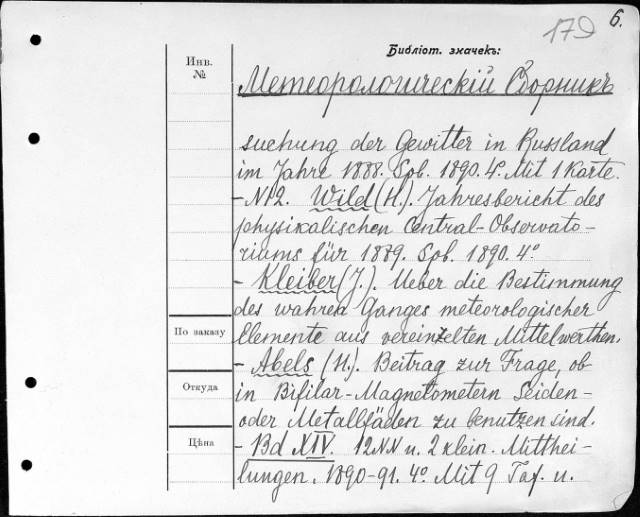 179 6.
Библіот. значекъ:
Инв.
№
Метеорологическій Сборникъ
suchung der Gewitter in Russland
im Jahre 1888. Spb. 1890. 4.° Mit 1 Karte.
- N12. Wild (H.). Jahresbericht des
physikalischen Central-Observato-
riums für 1889. Spb. 1890. 4°
- Kleiber (J.). Ueber die Bestimmung
des wahren Ganges meteorologischer
Elemente aus vereinzelten Mittelwerthen.
По заказу
- Abels (H.). Beitrag zur Frage, ob
Откуда
in Bifilar-Magnetometern Seiden-
oder Metallfäden zu benutzen sind.
Цѣна
- Bd XIV. 12 NN u. 2 klein. Mitthei-
lungen. 1890-91. 4° Mit 9 Taf. u.